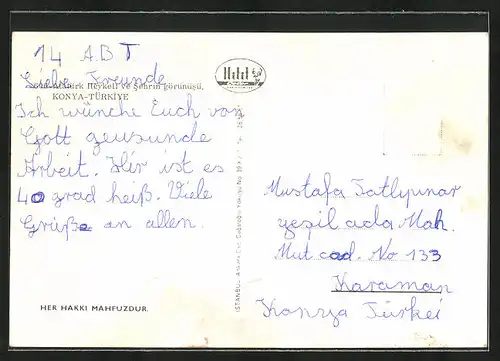 14 A.B T
Liebe Freunde
Atatürk Heykeli ve Şehrin görünüşü,
KONYA-TÜRKİYE
Ich wünche Euch von
Gott geusunde
Arbeit. Hir ist es
40 grad heiß. Viele
Grüße an allen.
HER HAKKI MAHFUZDUR.
İSTANBUL
Mustafa Tatlıpınar
yeşil ada Mah.
Mut cad. No 133
Karaman
Konya Türkei